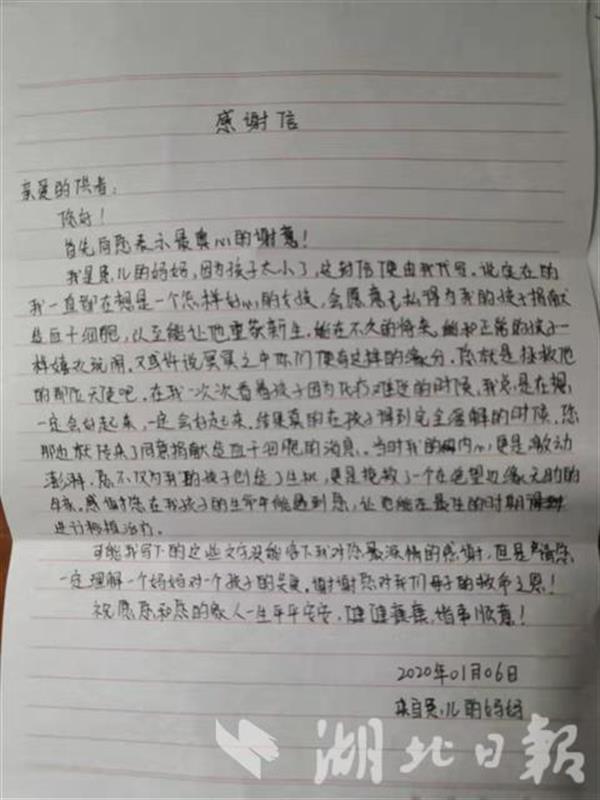 感谢信
亲爱的供者：
您好！
首先向您表示最衷心的谢意！
我是患儿的妈妈，因为孩子太小了，这封信便由我代写。说实在的
我一直都在想是一个怎样好心的女孩，会愿意无私得为我的孩子捐献
造血干细胞，以至能让他重获新生，能在不久的将来，能和正常的孩子一
样嬉戏玩闹。又或许说冥冥之中你们便有这样的缘分。您就是拯救他
的那位天使吧。在我一次次看着孩子因为化疗难过的时候，我总是在想
一定会好起来，一定会好起来。结果真的在孩子得到完全缓解的时候，您
那边就传来了同意捐献造血干细胞的消息。当时我的内心更是激动
澎湃。您不仅为我的孩子创造了生机，更是挽救了一个在绝望边缘无助的
母亲。感谢您在我孩子的生命中能遇到您，让他能在最佳的时期
进行移植治疗。
可能我写下的这些文字没能倍下我对您最深情的感谢，但是请您
一定理解一个妈妈对一个孩子的关爱。谢谢您对我们母子的救命之恩！
祝愿您和您的家人一生平平安安，健健康康，诸事顺意！
2020年01月06日
来自患儿的妈妈
湖北日報